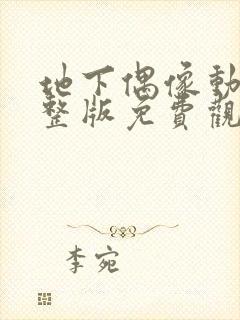 地下偶像動
整版免費觀
李宛